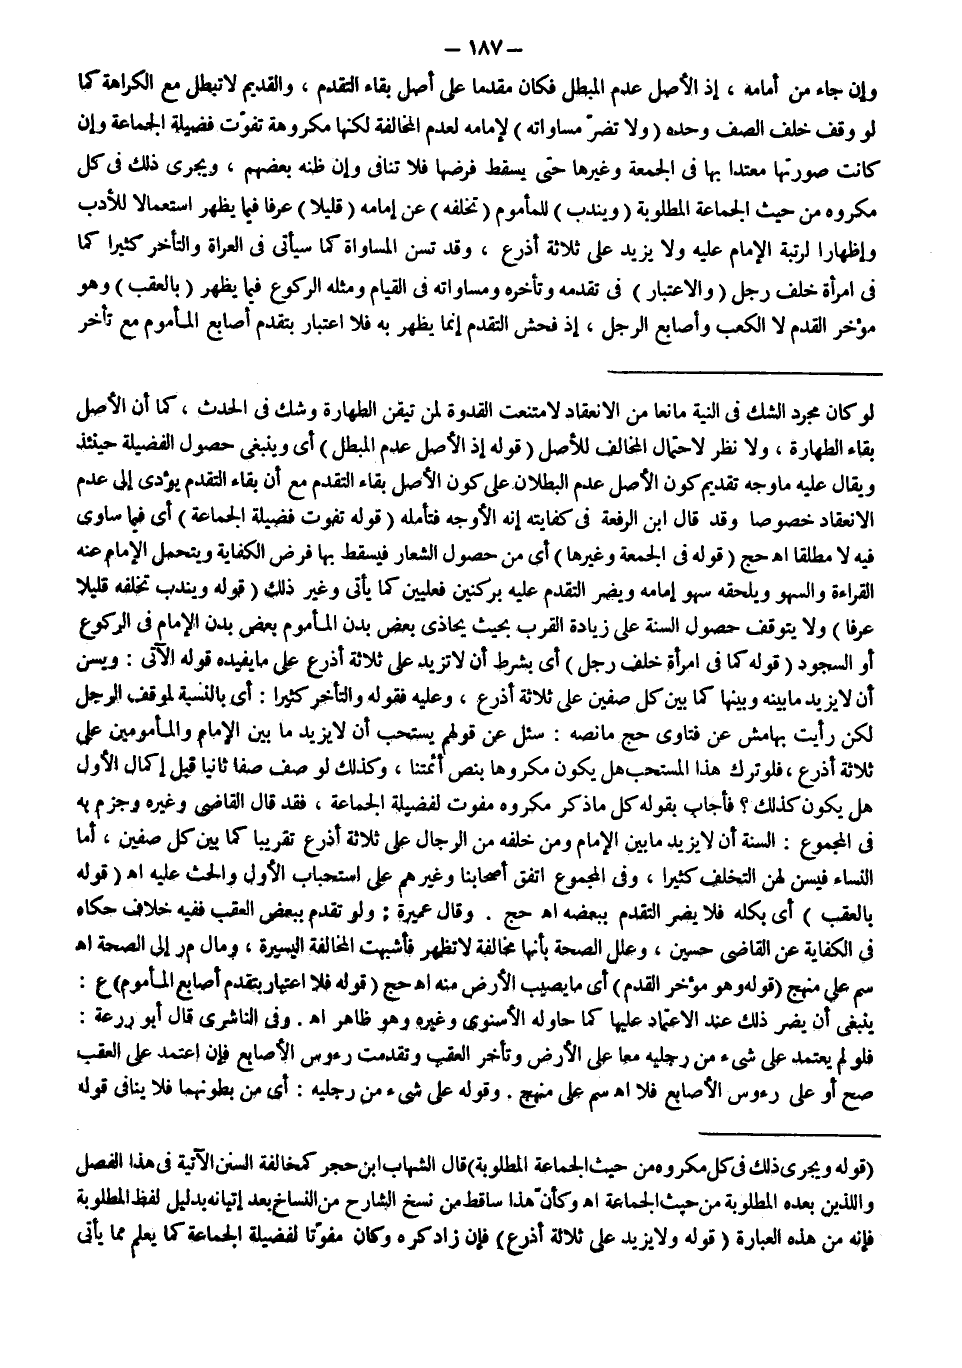 — ١٨٧ —
وإن جاء من أمامه ، إذ الأصل عدم المبطل فكان مقدما على أصل بقاء التقدم ، والقديم لاتبطل مع الكراهة كما
لو وقف خلف الصف وحده ( ولا تضرّ مساواته ) لإمامه لعدم المخالفة لكنها مكروهة تفوّت فضيلة الجماعة وإن
كانت صورتها معتدا بها فى الجمعة وغيرها حتى يسقط فرضها فلا تنافى وإن ظنه بعضهم ، ويجرى ذلك فى كل
مكروه من حيث الجماعة المطلوبة ( ويندب ) للمأموم ( تخلفه ) عن إمامه ( قليلا ) عرفا فيما يظهر استعمالا للأدب
وإظهارا لرتبة الإمام عليه ولا يزيد على ثلاثة أذرع ، وقد تسن المساواة كما سيأتى فى العراة والتأخر كثيرا كما
فى امرأة خلف رجل ( والاعتبار ) فى تقدمه وتأخره ومساواته فى القيام ومثله الركوع فيما يظهر ( بالعقب ) وهو
مؤخر القدم لا الكعب وأصابع الرجل ، إذ فحش التقدم إنما يظهر به فلا اعتبار بتقدم أصابع المأموم مع تأخر
لو كان مجرد الشك فى النية مانعا من الانعقاد لامتنعت القدوة لمن تيقن الطهارة وشك فى الحدث ، كما أن الأصل
بقاء الطهارة ، ولا نظر لاحتمال المخالف للأصل ( قوله إذ الأصل عدم المبطل ) أى وينبغى حصول الفضيلة حينئذ
ويقال عليه ماوجه تقديم كون الأصل عدم البطلان على كون الأصل بقاء التقدم مع أن بقاء التقدم يؤدى إلى عدم
الانعقاد خصوصا وقد قال ابن الرفعة فى كفايته إنه الأوجه فتأمله ( قوله تفوت فضيلة الجماعة ) أى فيما ساوى
فيه لا مطلقا اهـ حج ( قوله فى الجمعة وغيرها ) أى من حصول الشعار فيسقط بها فرض الكفاية ويتحمل الإمام عنه
القراءة والسهو ويلحقه سهو إمامه ويضر التقدم عليه بركنين فعليين كما يأتى وغير ذلك ( قوله ويندب تخلفه قليلا
عرفا ) ولا يتوقف حصول السنة على زيادة القرب بحيث يحاذى بعض بدن المأموم بعض بدن الإمام فى الركوع
أو السجود ( قوله كما فى امرأة خلف رجل ) أى بشرط أن لاتزيد على ثلاثة أذرع على مايفيده قوله الآتى : ويسن
أن لايزيد مابينه وبينها كما بين كل صفين على ثلاثة أذرع ، وعليه فقوله والتأخر كثيرا : أى بالنسبة لموقف الرجل
لكن رأيت بهامش عن فتاوى حج مانصه : سئل عن قولهم يستحب أن لايزيد ما بين الإمام والمأمومين على
ثلاثة أذرع ، فلوترك هذا المستحب هل يكون مكروها بنص أئمتنا ، وكذلك لو صف صفا ثانيا قبل إكمال الأول
هل يكون كذلك ؟ فأجاب بقوله كل ماذكر مكروه مفوت لفضيلة الجماعة ، فقد قال القاضى وغيره وجزم به
فى المجموع : السنة أن لايزيد مابين الإمام ومن خلفه من الرجال على ثلاثة أذرع تقريبا كما بين كل صفين ، أما
النساء فيسن لهن التخلف كثيرا ، وفى المجموع اتفق أصحابنا وغيرهم على استحباب الأول والحث عليه اهـ ( قوله
بالعقب ) أى بكله فلا يضر التقدم ببعضه اهـ حج . وقال عميرة : ولو تقدم ببعض العقب ففيه خلاف حكاه
فى الكفاية عن القاضى حسين ، وعلل الصحة بأنها مخالفة لاتظهر فأشبهت المخالفة اليسيرة ، ومال مر إلى الصحة اهـ
سم على منهج (قوله وهو مؤخر القدم ) أى مايصيب الأرض منه اهـ حج ( قوله فلا اعتبار بتقدم أصابع المأموم) ع :
ينبغى أن يضر ذلك عند الاعتماد عليها كما حاوله الأسنوى وغيره وهو ظاهر اهـ . وفى الناشرى قال أبو زرعة :
فلو لم يعتمد على شىء من رجليه معا على الأرض وتأخر العقب وتقدمت رءوس الأصابع فإن اعتمد على العقب
صح أو على رءوس الأصابع فلا اهـ سم على منهج . وقوله على شىء من رجليه : أى من بطونهما فلا ينافى قوله
(قوله ويجرى ذلك فى كل مكروه من حيث الجماعة المطلوبة) قال الشهاب ابن حجر كمخالفة السنن الآتية فى هذا الفصل
واللذين بعده المطلوبة من حيث الجماعة اهـ وكأنّ هذا ساقط من نسخ الشارح من النساخ بعد إتيانه بدليل لفظ المطلوبة
فإنه من هذه العبارة ( قوله ولايزيد على ثلاثة أذرع) فإن زاد كره وكان مفوّتا لفضيلة الجماعة كما يعلم مما يأتى